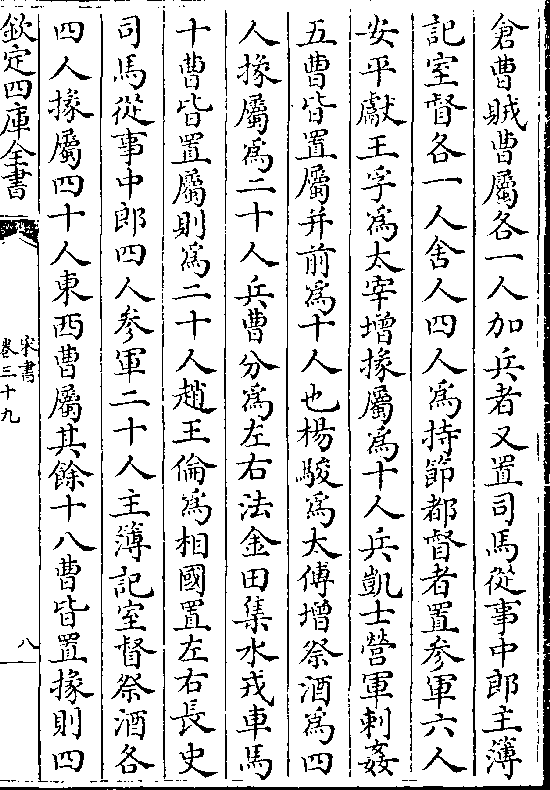 倉曹賊曹屬各一人加兵者又置司馬從事中郎主簿
記室督各一人舍人四人為持節都督者置參軍六人
安平獻王孚為太宰增掾屬為十人兵凱士營軍刺姦
五曹皆置屬并前為十人也楊駿為太傅增祭酒為四
人掾屬為二十人兵曹分為左右法金田集水戎車馬
十曹皆置屬則為二十人趙王倫為相國置左右長史
司馬從事中郎四人參軍二十人主簿記室督祭酒各
四人掾屬四十人東西曹屬其餘十八曹皆置掾則四
欽定四庫全書
宋書
卷三十九
八